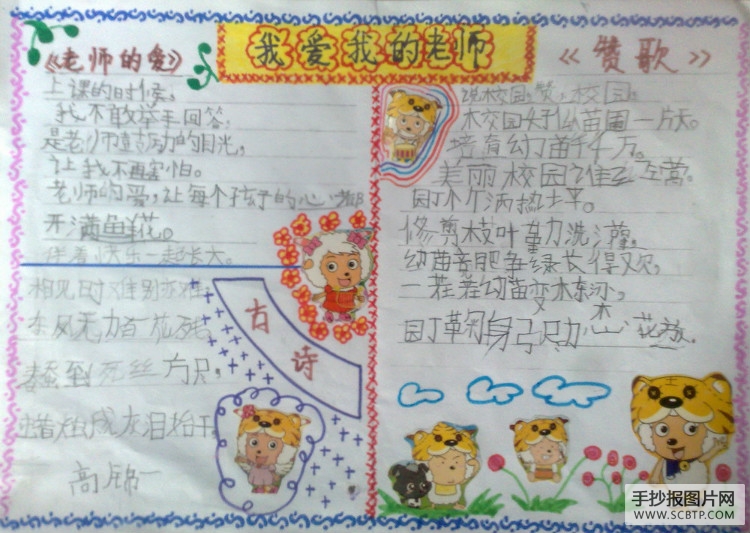 我爱我的老师
《老师的爱》
上课的时候，
我不敢举手回答，
是老师鼓动的目光，
让我不再害怕。
老师的爱，让每个孩子的心都
开满鲜花。
伴着快乐一起长大。
相见时难别亦难，
东风无力百花残，
春蚕到死丝方尽，
蜡炬成灰泪始干
高锦一
古诗
《赞歌》
说校园，赞，校园。
木校园好似苗圃一片天。
培育幼苗千千万。
美丽校园谁在营。
园丁
修剪枝叶勤洗灌，
幼苗
一茬茬幼苗变木东河，
木
园丁革匊身弓尽力心花放.
手抄报图片网
WWW.SCBTP.COM